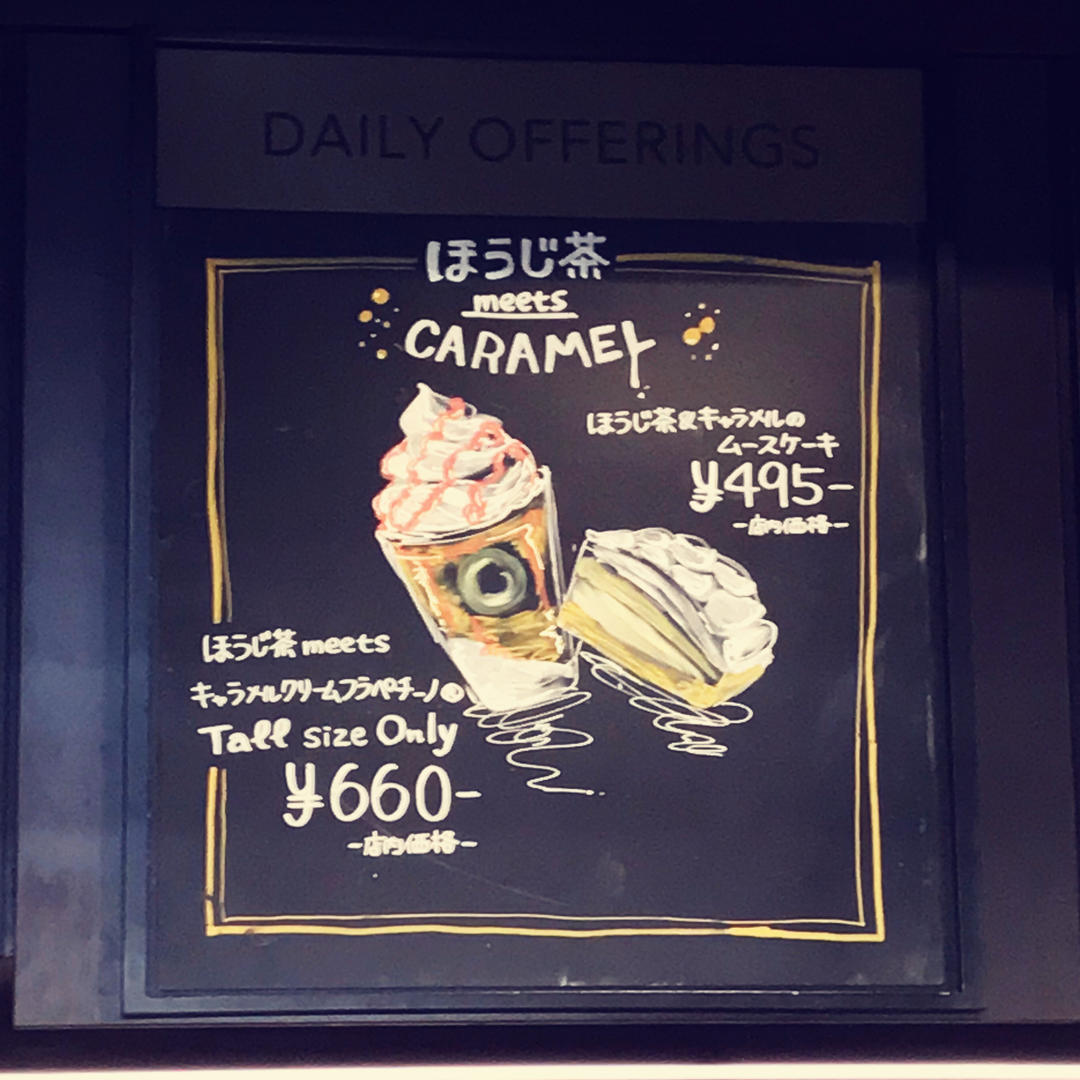 DAILY OFFERINGS
ほうじ茶
meets
CARAMEL
ほうじ茶&キャラメルの
ムースケーキ
¥495-
-店内価格-
ほうじ茶 meets
キャラメルクリームフラペチーノ®
Tall size Only
¥660-
-店内価格-